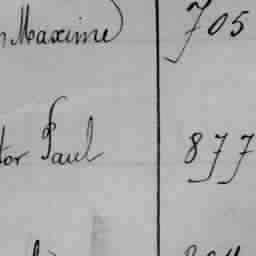 Maxime 705
tor Paul 877